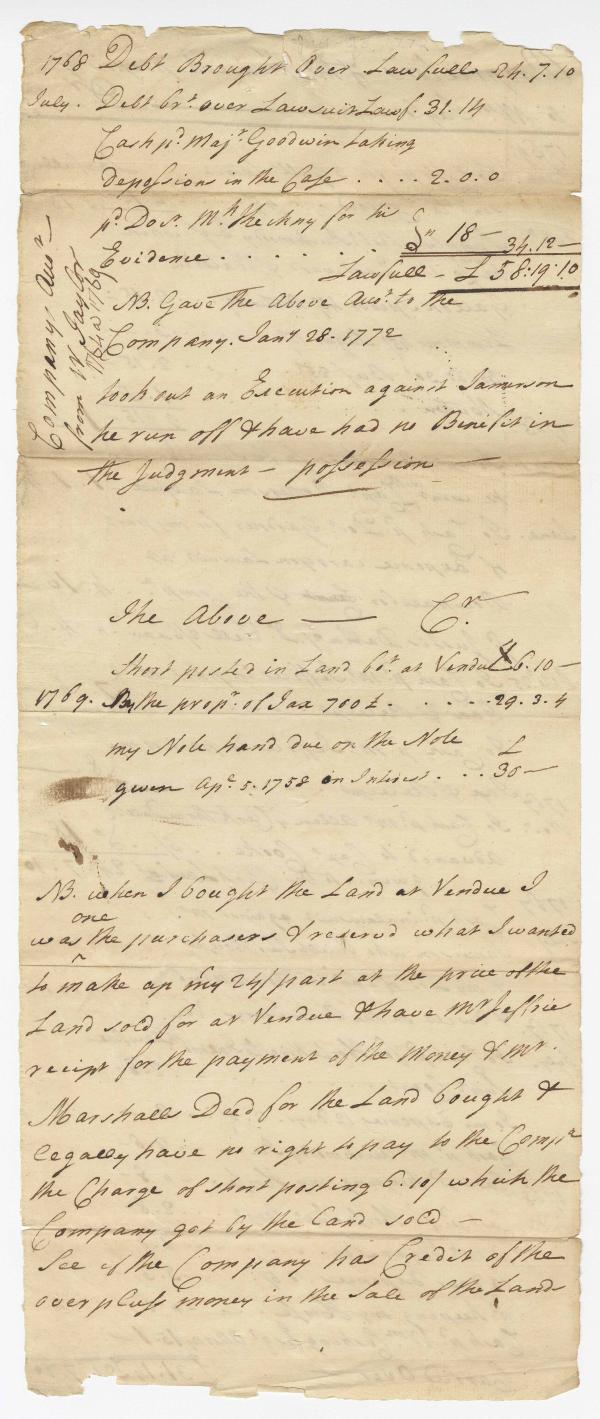 1768 Debt Brought Over Lawfull 24.7.10
July. Debt brt. over Lawsuit Lawf. 31.14
Cash pd. Majr. Goodwin taking
depossions in the Case .... 2.0.0
pd. Docr. for his
Evidence ...... 18—
34.12—
Lawfull — £58:19:10
NB. Gave the Above Acct. to the
Company. Jany 28. 1772
took out an Execution against Jameson
he run off & have had no Benifit in
the Judgment — possession —
Company, Acct.
from W Taylor
1769
The Above —— Cr.
Short posted in Land bot. at Vendue £6.10—
1769. By the propr. of Tax 700£ ..... 29.3.4
my Note hand due on the Note
given Apl. 5. 1758 on Interest ... £30—
NB. when I bought the Land at Vendue I
was one the purchasers & reservd what I wanted
to make up my 24/ part at the price of the
Land sold for at Vendue & have Mr Jeffrie
recipt for the payment of the Money & Mr.
Marshalls Deed for the Land bought &
legally have no right to pay to the Compa
the Charge of short posting 6.10/ which the
Company got by the land sold —
See if the Company has Credit of the
over pluss money in the Sale of the Land